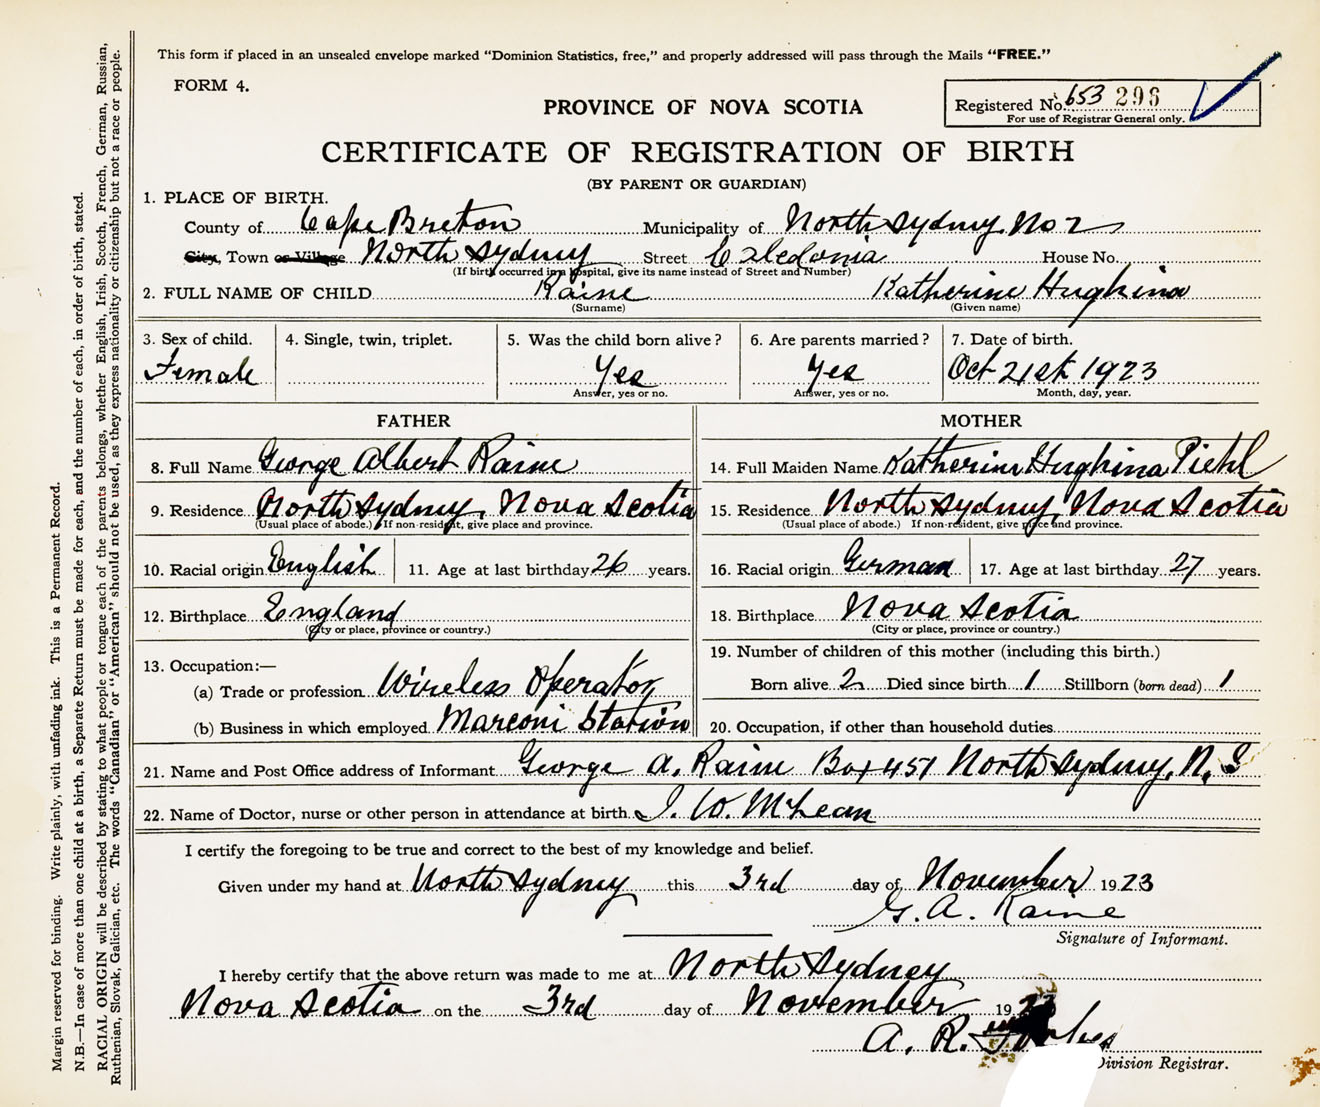 This form if placed in an unsealed envelope marked "Dominion Statistics, free," and properly addressed will pass through the Mails "FREE."
FORM 4.
Registered No. 653 296
For use of Registrar General only.
PROVINCE OF NOVA SCOTIA
CERTIFICATE OF REGISTRATION OF BIRTH
(BY PARENT OR GUARDIAN)
1. PLACE OF BIRTH.
County of Cape Breton Municipality of North Sydney No 2
City, Town or Village North Sydney Street Caledonia House No.
(If birth occurred in a hospital, give its name instead of Street and Number)
2. FULL NAME OF CHILD Raine Katherine Hughina
(Surname) (Given name)
3. Sex of child. 4. Single, twin, triplet. 5. Was the child born alive? 6. Are parents married? 7. Date of birth.
Female Yes Yes Oct 21st 1923
Answer, yes or no. Answer, yes or no. Month, day, year.
FATHER MOTHER
8. Full Name George Albert Raine 14. Full Maiden Name Katherine Hughina Piehl
9. Residence North Sydney, Nova Scotia 15. Residence North Sydney Nova Scotia
(Usual place of abode.) If non-resident, give place and province. (Usual place of abode.) If non-resident, give place and province.
10. Racial origin English 11. Age at last birthday 26 years. 16. Racial origin German 17. Age at last birthday 27 years.
12. Birthplace England 18. Birthplace Nova Scotia
(City or place, province or country.) (City or place, province or country.)
13. Occupation:— 19. Number of children of this mother (including this birth.)
(a) Trade or profession Wireless Operator Born alive 2 Died since birth 1 Stillborn (born dead) 1
(b) Business in which employed Marconi Station 20. Occupation, if other than household duties
21. Name and Post Office address of Informant George A. Raine Box 451 North Sydney, N. S
22. Name of Doctor, nurse or other person in attendance at birth J. W. McLean
I certify the foregoing to be true and correct to the best of my knowledge and belief.
Given under my hand at North Sydney this 3rd day of November 1923
G. A. Raine
Signature of Informant.
I hereby certify that the above return was made to me at North Sydney
Nova Scotia on the 3rd day of November 19
A. R. Forbes
Division Registrar.
Margin reserved for binding. Write plainly, with unfading ink. This is a Permanent Record.
N.B.—In case of more than one child at a birth, a Separate Return must be made for each, and the number of each, in order of birth, stated.
RACIAL ORIGIN will be described by stating to what people or tongue each of the parents belongs, whether English, Irish, Scotch, French, German, Russian,
Ruthenian, Slovak, Galician, etc. The words "Canadian" or "American" should not be used, as they express nationality or citizenship but not a race or people.